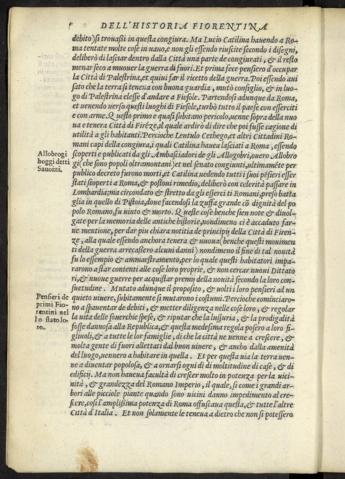 DELL'HISTORIA FIORENTINA
debito, si trouasti in questa congiura. Ma Lucio Catilina hauendo a Ro-
ma tentate molte cose in uano, e non gli essendo riuscite secondo i disegni,
deliberò di lasciar dentro dalla Città una parte de congiurati, & il resto
menar seco a muouer la guerra di fuori. Et prima fece pensiero d'occupar
la Città di Palestrina, et quiui far il ricetto della guerra. Poi essendo aui
sato che la terra si teneua con buona guardia, mutò consiglio, & in luo-
go di Palestrina elesse d'andare a Fiesole. Partendosi adunque da Roma,
et uenendo uerso questi luoghi di Fiesole, turbò tutto il paese con esserciti
e con arme. Questo primo e quasi subitano pericolo, uenne sopra della nuo
ua e tenera Città di Firēze, il quale ardirò di dire che poi fusse cagione di
utilità a gli habitanti. Percioche Lentulo Cethego, et altri Cittadini Ro-
mani capi della congiura, i quali Catilina haueua lasciati a Roma, essendo
scoperti e publicati da gli Ambasciadori de gli Allogobri, ouero Allobro
gi (che sono popoli oltramontani) et nel senato conuinti, ultimamēte per
publico decreto furono morti, et Catilina uedendo tutti i suoi pēsieri esse
stati scoperti a Roma, & postoui rimedio, deliberò con celerità passare in
Lombardia; ma circondato & stretto da gli esserciti Romani, preso batta
glia in quello di Pistoia, doue facendosi la zuffa grande cō dignità del po
polo Romano, fu uinto & morto. Queste cose benche sien note & diuol-
gate per la memoria delle antiche historie, nondimeno ci è accaduto far-
ne mentione, per dar piu chiara notitia de principij della Città di Firen-
ze, alla quale essendo anchora tenera & nuoua, benche questi mouimen
ti della guerra arrecassero alcuni danni; nondimeno il fine di tal nouità
fu lo essempio & ammaestramento, per lo quale questi habitatori impa-
rarono a star contenti alle cose loro proprie, & non cercar nuoui Dittato
ri, & nuoue guerre per acquistar premij della nouità secondo la loro con-
suetudine. Mutato adunque il proposito, & uolti i loro pensieri ad un
quieto uiuere, subitamente si mutarono i costumi. Percioche cominciaro-
no a spauentar de debiti, & metter diligenza nelle cose loro, & regolar
la uita delle souerchie spese, & riputar che la lussuria, & la prodigalità
fosse dannosa alla Republica, & questa medesima regola posero a loro fi-
gliuoli, & a tutte le lor famiglie, di che la città ne uenne a crescere, &
molta gente di fuori allettati dal buon uiuere, & ancho dalla amenità
del luogo, uennero a habitare in quella. Et per questa uia la terra uen-
ne a diuentar popolosa, & a ornarsi ogni dì di moltitudine di case, & di
edificij. Ma non haueua facultà di crescer molto in potenza per la uici-
nità, & grandezza del Romano Imperio, il quale, si come i grandi ar-
bori alle picciole piante quando sono uicini danno impedimento al cre-
scere, cosi l'amplissima potenza di Roma offuscaua questa, & tutte l'altre
Città d'Italia. Et non solamente le teneua a dietro che non si potessero
Allobrogi
hoggi detti
Sauoini.
Pensieri de
primi Fio-
rentini nel
lo stato lo-
ro.